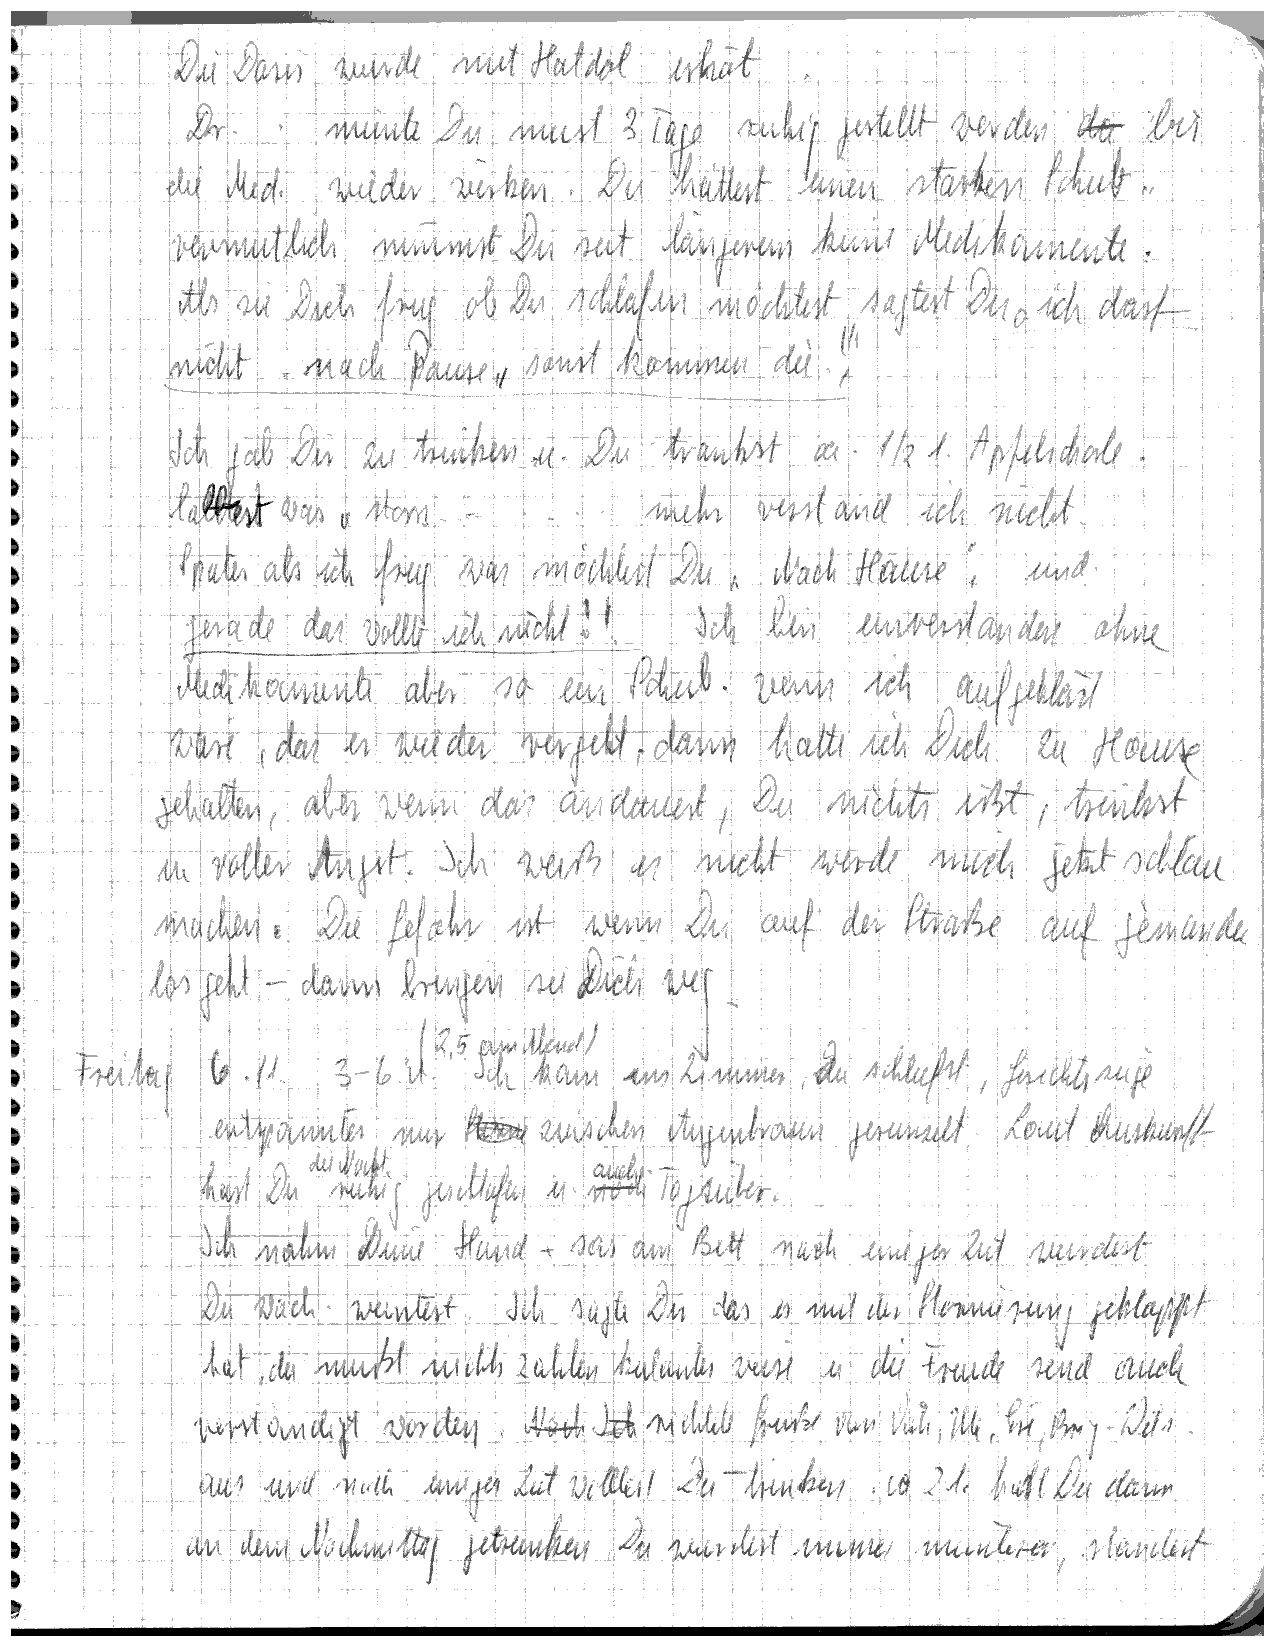 Die Dosis wurde mit Haldol erhöt.
Dr. meinte Du must 3 Tage ruhig gestellt werden da bis
die Med. wieder wirken. Du hattest einen starken Schub..
vermutlich nimmst Du seit längerem keine Medikamente.
Als sie Dich frug ob Du schlafen möchtest sagtest Du „ich darf
nicht . nach Hause„ sonst kommen die.!!!
Ich gab Dir zu trinken u. Du trankst ca. 1/2 l. Apfelschorle.
lalltest was „ storn mehr verstand ich nicht.
Später als ich frug was möchtest Du „ Nach Hause". und.
gerade das wollte ich nicht!! Ich bin einverstanden ohne
Medikamente aber so ein Schub. wenn ich aufgeklärt
wäre, das er wieder vergeht, dann hätte ich Dich zu Hause
gehalten, aber wenn das andauert, Du nichts ißt, trinkst
in voller Angst. Ich weiß es nicht werde mich jetzt schlau
machen. Die Gefahr ist wenn Du auf der Straße auf jemanden
los geht – dann bringen sie Dich weg
(2,5 am Abend)
Freitag 6.11. 3-6 U. Ich kam ins Zimmer, du schliefst, Gesichtszüge
entspannter nur zwischen Augenbrauen gerunzelt Laut Auskunft
der Nacht auch
hast Du ruhig geschlafen u. noch Tagsüber.
Ich nahm Deine Hand + sas am Bett nach einiger Zeit wurdest
Du wach. weintest. Ich sagte Dir das es mit der Stornierung geklappt
hat, du mußt nichts zahlen kulanter weise u die Freude send auch
verständigt worden. Nach Ich richtete Grüße von
aus und nach einiger Zeit wolltest Du trinken. ca 2 l. hast Du dann
an dem Nachmittag getrunken Du wurdest immer munterer, standest